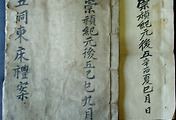 崇禎紀元後五辛酉夏四月 日
崇禎紀元後五己巳九月
五祠東床禮案